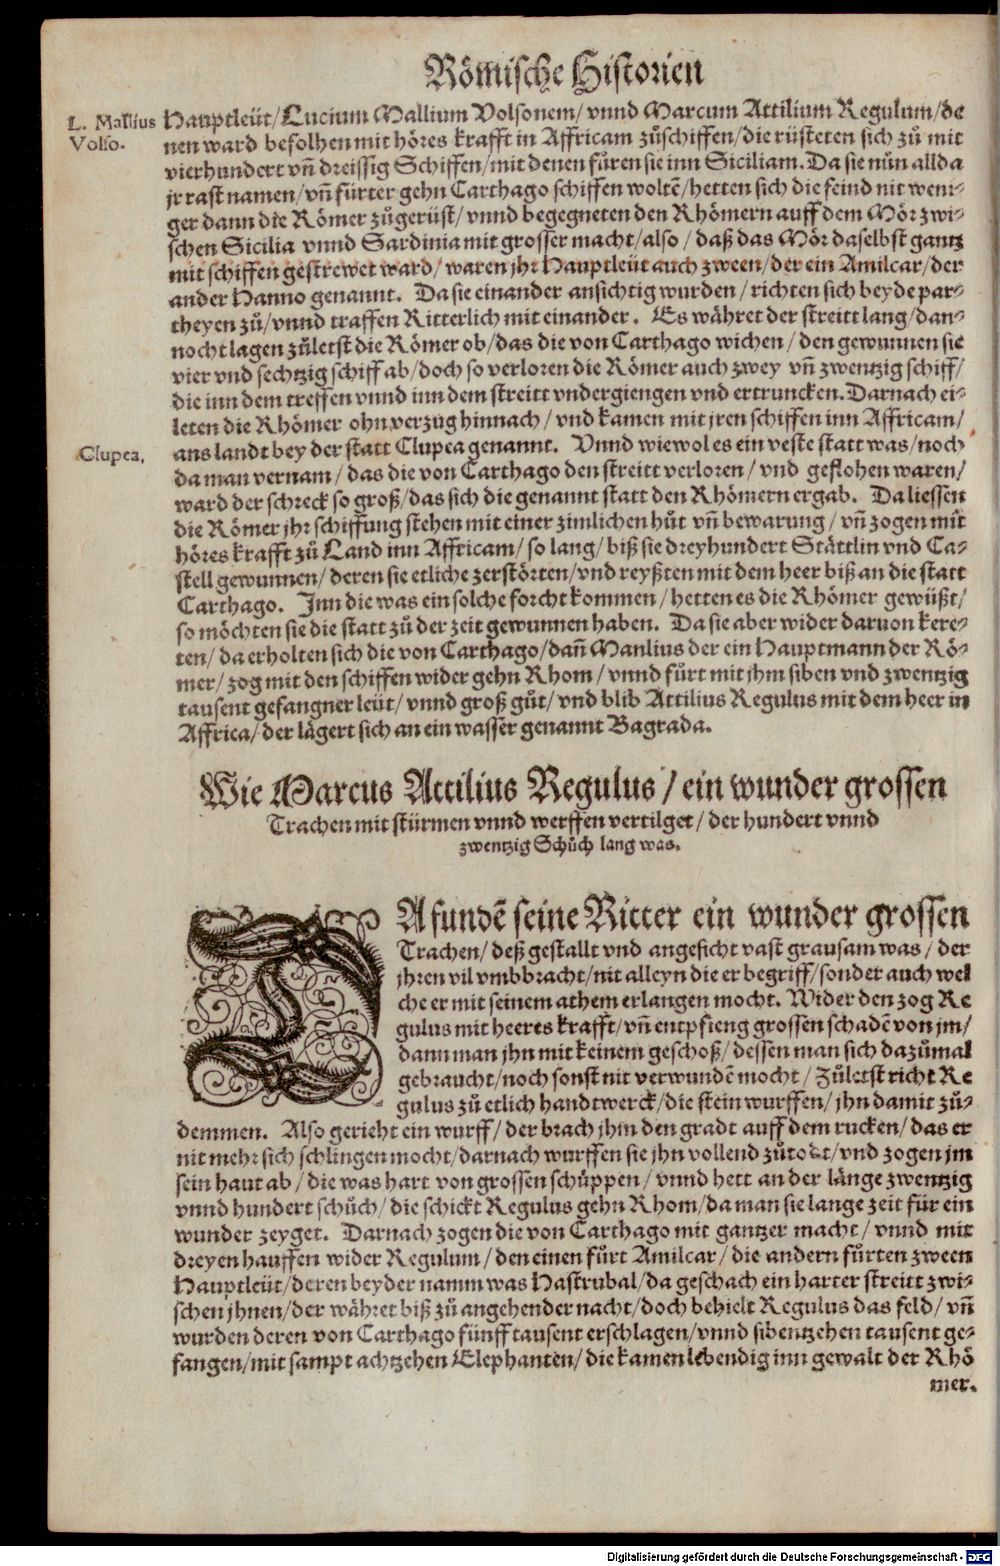 Römische Historien
L. Mallius
Volso.
Hauptleüt/Lucium Mallium Volsonem/ vnnd Marcum Attilium Regulum/de
nen ward befolhen mit höres krafft in Affricam zůschiffen/die rüsteten sich zů mit
vierhundert vñ dreissig Schiffen/mit denen fůren sie inn Siciliam. Da sie nůn allda
jr rast namen/ vñ fürter gehn Carthago schiffen woltẽ/hetten sich die feind nit weni-
ger dann die Römer zůgerüst/ vnnd begegneten den Rhömern auff dem Mör zwi-
schen Sicilia vnnd Sardinia mit grosser macht/also/ daß das Mör daselbst gantz
mit schiffen gestrewet ward/ waren jhr Hauptleüt auch zween/der ein Amilcar/der
ander Hanno genannt. Da sie einander ansichtig wurden/richten sich beyde par-
theyen zů/vnnd traffen Ritterlich mit einander. Es währet der streitt lang/dan-
nocht lagen zůletst die Römer ob/das die von Carthago wichen/ den gewunnen sie
vier vnd sechtzig schiff ab/doch so verloren die Römer auch zwey vñ zwentzig schiff/
die inn dem treffen vnnd inn dem streitt vndergiengen vnd ertruncken. Darnach ei-
leten die Rhömer ohn verzug hinnach/ vnd kamen mit jren schiffen inn Affricam/
Clupea.
ans landt bey der statt Clupea genannt. Vnnd wiewol es ein veste statt was/noch
da man vernam/das die von Carthago den streitt verloren/ vnd geflohen waren/
ward der schreck so groß/das sich die genannt statt den Rhömern ergab. Da liessen
die Römer jhr schiffung stehen mit einer zimlichen hůt vñ bewarung/ vñ zogen mit
höres krafft zů Land inn Affricam/so lang/biß sie dreyhundert Stättlin vnd Ca-
stell gewunnen/deren sie etliche zerstörten/vnd reyßten mit dem heer biß an die statt
Carthago. Inn die was ein solche forcht kommen/hetten es die Rhömer gewüßt/
so möchten sie die statt zů der zeit gewunnen haben. Da sie aber wider daruon kere-
ten/da erholten sich die von Carthago/dañ Manlius der ein Hauptmann der Rö-
mer/zog mit den schiffen wider gehn Rhom/vnnd fůrt mit jhm siben vnd zwentzig
tausent gefangner leüt/ vnnd groß gůt/vnd blib Attilius Regulus mit dem heer in
Affrica/der lägert sich an ein wasser genannt Bagrada.
Wie Marcus Attilius Regulus/ein wunder grossen
Trachen mit stürmen vnnd werffen vertilget/der hundert vnnd
zwentzig Schůch lang was.
DA fundẽ seine Ritter ein wunder grossen
Trachen/deß gestallt vnd angesicht vast grausam was/der
jhren vil vmbbracht/nit alleyn die er begriff/sonder auch wel
che er mit seinem athem erlangen mocht. Wider den zog Re
gulus mit heeres krafft/vñ entpfieng grossen schadẽ von jm/
dann man jhn mit keinem geschoß/dessen man sich dazůmal
gebraucht/noch sonst nit verwundẽ mocht/Zůletst richt Re
gulus zů etlich handtwerck/die stein wurffen/jhn damit zů-
demmen. Also gerieht ein wurff/der brach jhm den gradt auff dem rucken/das er
nit mehr sich schlingen mocht/darnach wurffen sie jhn vollend zůtodt/vnd zogen jm
sein haut ab/die was hart von grossen schüppen/ vnnd hett an der länge zwentzig
vnnd hundert schůch/die schickt Regulus gehn Rhom/da man sie lange zeit für ein
wunder zeyget. Darnach zogen die von Carthago mit gantzer macht/ vnnd mit
dreyen hauffen wider Regulum/den einen fůrt Amilcar/die andern fůrten zween
Hauptleüt/deren beyder namm was Hastrubal/da geschach ein harter streitt zwi-
schen jhnen/der währet biß zů angehender nacht/doch behielt Regulus das feld/vñ
wurden deren von Carthago fünff tausent erschlagen/vnnd sibentzehen tausent ge-
fangen/mit sampt achtzehen Elephanten/die kamen lebendig inn gewalt der Rhö
mer.
Digitalisierung gefördert durch die Deutsche Forschungsgemeinschaft - DFG